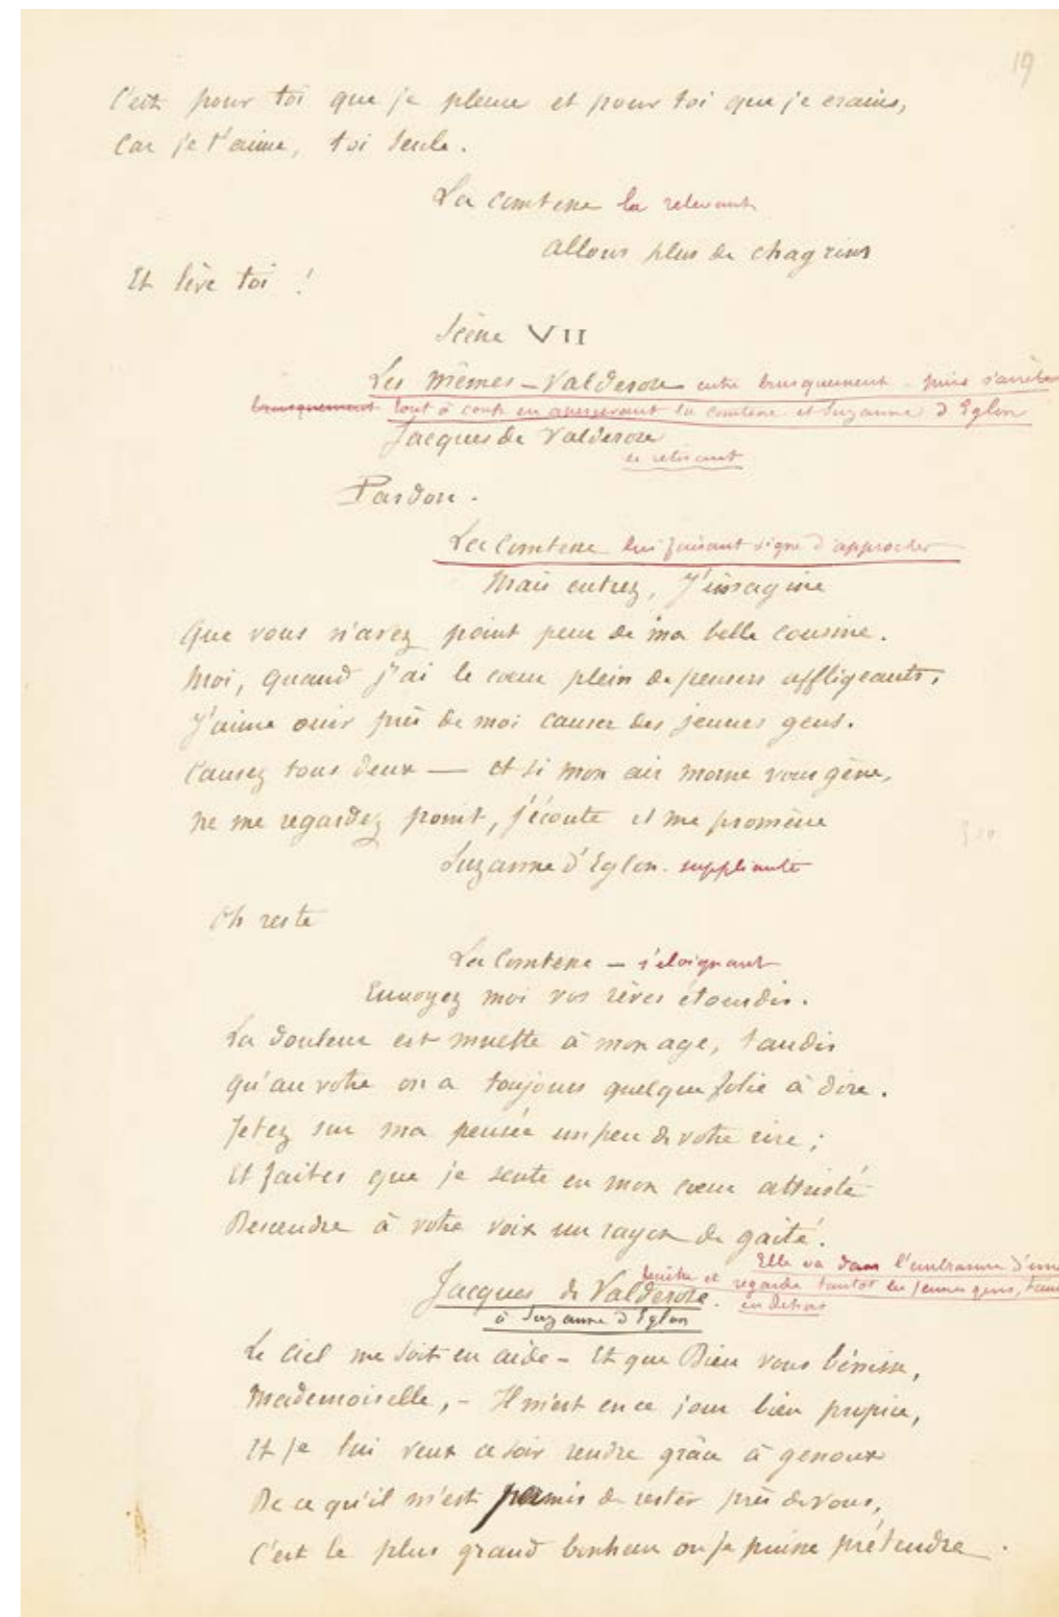 19
C'est pour toi que je pleure et pour toi que je crains,
Car je t'aime, toi seule.
La comtesse la relevant
Allons plus de chagrins
Et lève toi !
Scène VII
Les Mêmes - Valderose entre brusquement - puis s'arrête
brusquement tout à coup en apercevant la comtesse et Suzanne d'Eglon
Jacques de Valderose
se retirant
Pardon.
La Comtesse lui faisant signe d'approcher
Mais entrez, J'imagine
Que vous n'avez point peur de ma belle cousine.
Moi, quand j'ai le cœur plein de pensers affligeants,
J'aime ouir près de moi causer des jeunes gens.
Causez tous deux — et si mon air morne vous gêne,
ne me regardez point, j'écoute et me promène
Suzanne d'Eglon. suppliante
Oh reste
La Comtesse - s'éloignant
Envoyez moi vos rêves étourdis.
La douleur est muette à mon age, tandis
qu'au votre on a toujours quelque folie à dire.
Jetez sur ma pensée un peu de votre rire ;
Et faites que je sente en mon cœur attristé
Descendre à votre voix un rayon de gaité.
Elle va dans l'embrasure d'une
fenêtre et regarde tantôt les jeunes gens, tantôt
en dehors
Jacques de Valderose.
à Suzanne d'Eglon
Le Ciel me soit en aide - Et que Dieu vous bénisse,
Mademoiselle, - Il m'est en ce jour bien propice,
Et je lui veux ce soir rendre grâce à genoux
De ce qu'il m'est permis de rester près de vous,
C'est le plus grand bonheur où je puisse prétendre.